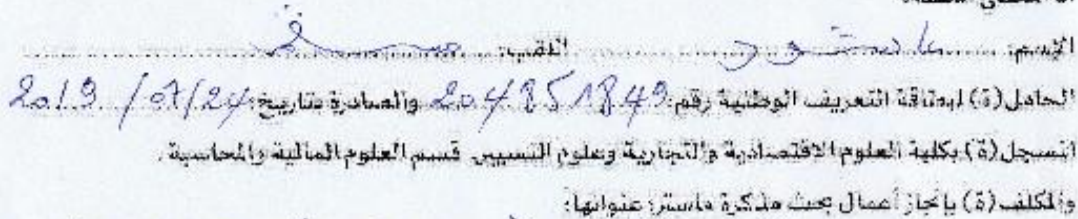 الإسم: اللقب:
الحامل(ة) لبطاقة التعريف الوطنية رقم: 204851849 والصادرة بتاريخ: 2019/07/24
المسجل(ة) بكلية العلوم الاقتصادية والتجارية وعلوم التسيير قسم العلوم المالية والمحاسبة.
والمكلف(ة) بإنجاز أعمال بحث مذكرة ماستر؛ عنوانها: